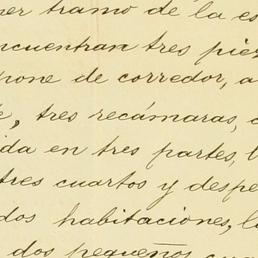 ner tramo de la es
ncuentran tres piez
pone de corredor, a
e, tres recámaras, c
ida en tres partes, l
tres cuartos y despe
dos habitaciones, l
dos pequeños